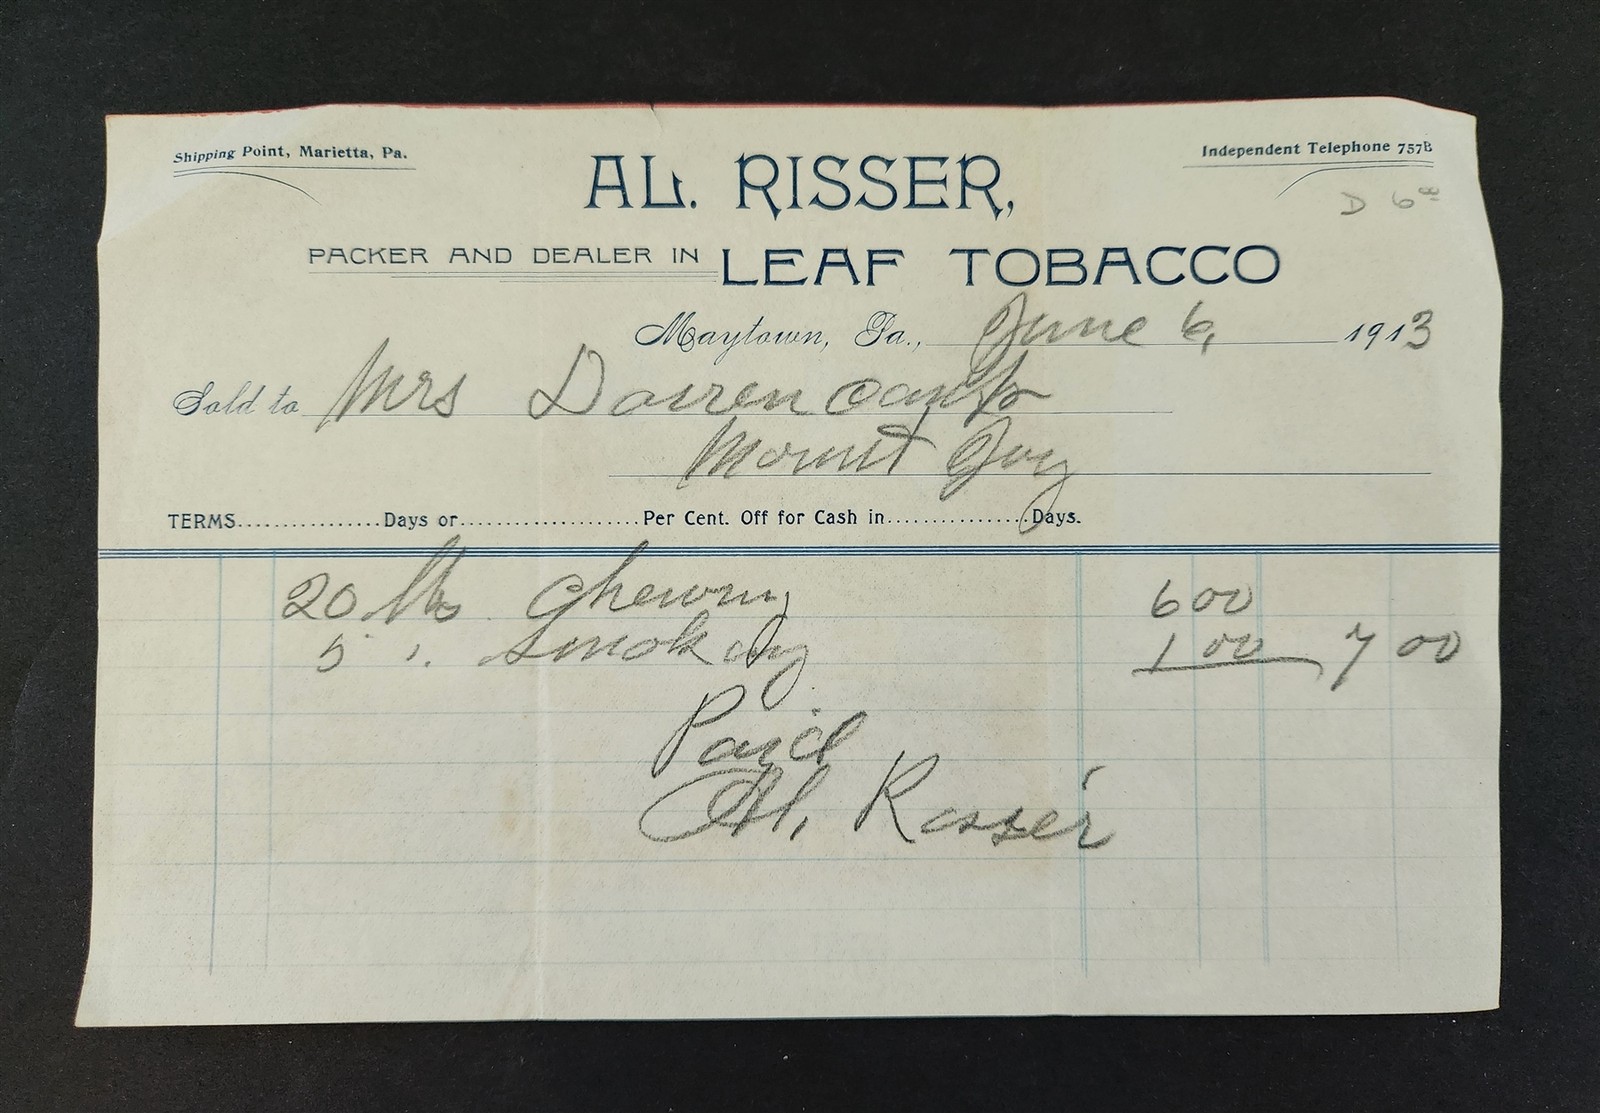 Shipping Point, Marietta, Pa.
Independent Telephone 757B
AL. RISSER,
D 6 00
PACKER AND DEALER IN LEAF TOBACCO
Maytown, Pa., June 6, 1913
Sold to Mrs
Mount Joy
TERMS................Days or.....................Per Cent. Off for Cash in................Days.
20 lbs Chewing 6 00
5 " Smoking 1 00 7 00
Paid
Al. Risser